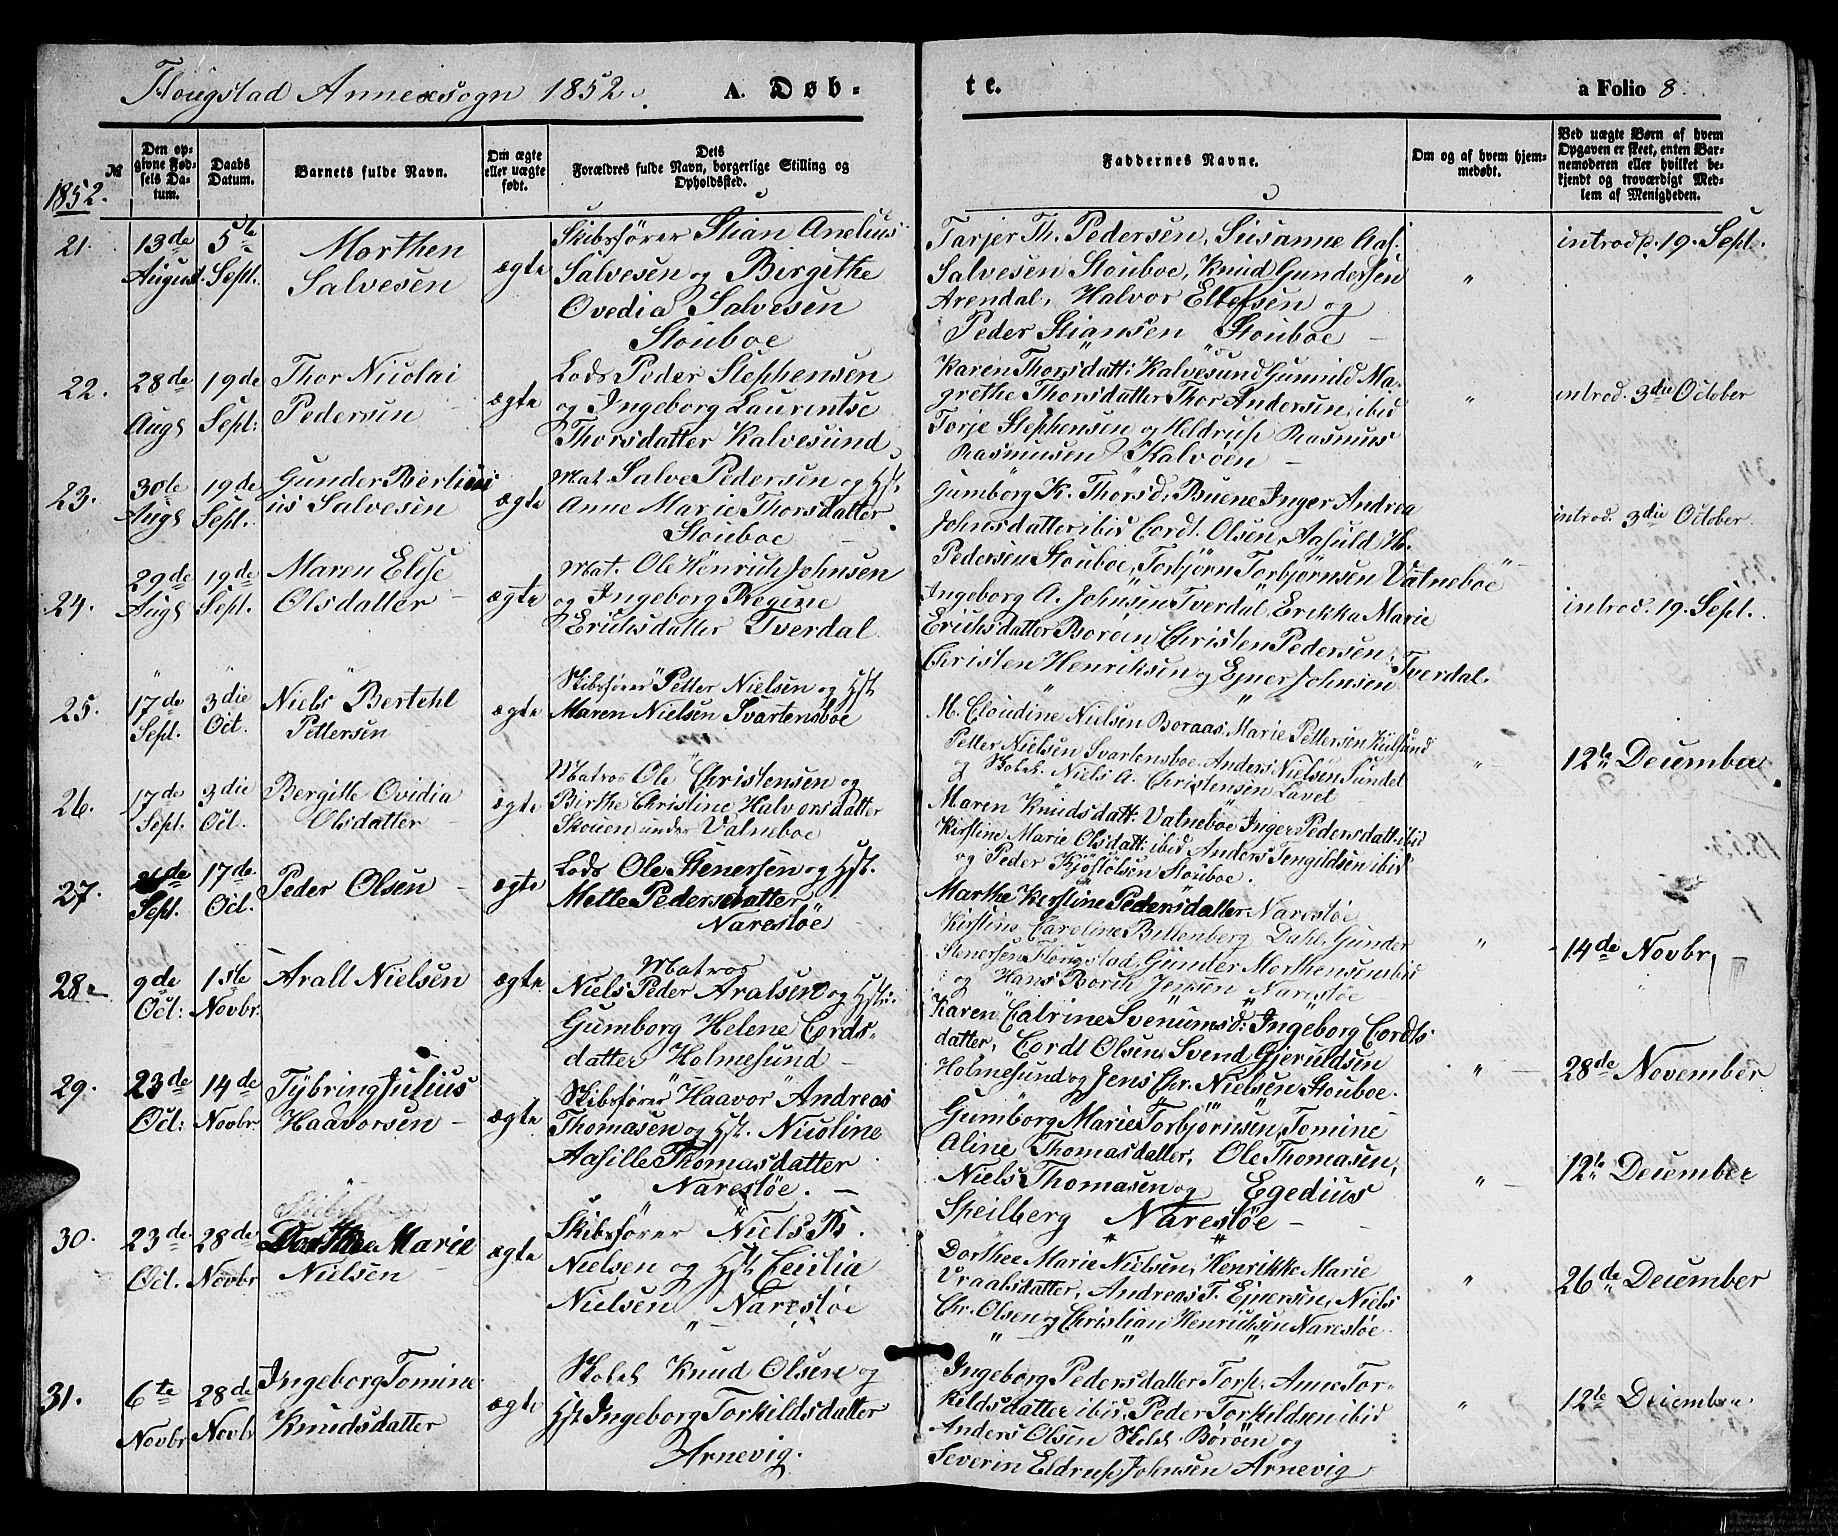 Flougstad Annexsogn 1852. A. Døb-
te. a Folio 8.
1852.
№
Den op-
givne Fød-
sels Da-
tum.
Daabs
Datum.
Barnets fulde Navn.
Om ægte
eller uægte
født.
Dets
Forældres fulde Navn, borgerlige Stilling og
Opholdssted.
Faddernes Navne.
Om og af hvem hjem-
medøbt.
Ved uægte Børn af hvem
Opgaven er skeet, enten Bar-
nemoderen eller hvilket be-
kjendt og troværdigt Med-
lem af Menigheden.
21.
13de
August
5te
Sept.
Morthen
Salvesen
ægte
Skibsfører Stian Anelius
Salvesen og Birgithe
Ovedia Salvesen
Stouboe
Tarjer Th. Pedersen, Susanne Aas.
Salvesen Stouboe, Knud Gundersen
Arendal, Halvor Ellefsen og
Peder Stiansen Stouboe
"
introd. 19. Sept.
22.
28de
Augs
19de
Sept:
Thor Nicolai
Pedersen
ægte
Lods Peder Stephensen
og Ingeborg Laurentse
Thorsdatter Kalvesund
Karen Thorsdatt: Kalvesund Gunnild Ma-
grethe Thorsdatter Thor Andersen, ibid
Torje Stephensen og Heldrup Rasmus
Rasmusen Kalvøen
"
introd. 3die October
23.
30te
Augs
19de
Sept.
Gunder Berlius
ius Salvesen
ægte
Mat. Salve Pedersen og Hst.
Anne Marie Thorsdatter
Stouboe
Gumborg K. Thorsd. Buene Inger Andrea
Johnsdatter ibid Cordt. Olsen, Aasuld H.
Pedersen Stouboe, Torbjørn Torbjørnsen Vatneboe
introd. 3die October.
24.
29de
Augs
19de
Sept.
Maren Elise
Olsdatter
ægte
Mat. Ole Henrich Johnsen
og Ingeborg Regine
Erichsdatter Tverdal
Ingeborg A. Johnsen Tverdal, Erikka Marie
Erichsdatter Borøen, Christen Pedersen,
Christen Henriksen og Ejner Johnsen Tverdal.
introd. 19. Sept.
25.
17de
Sept.
3die
Oct.
Niels Bertehl
Pettersen
ægte
Skibsfører Petter Nielsen og Hst
Maren Nielsen Svartensboe
M. Cloudine Nielsen Boraas. Marie Pettersen Kiilsund
Petter Nielsen Svartensboe. Anders Nielsen Sundet
og Skolel. Niels A. Christensen Lavet
"
12te December
26.
17de
Sept.
3die
Oct.
Bergitte Ovidia
Olsdatter
ægte
Matros Ole Christensen og
Birthe Christine Halvorsdatter
Skouen under Vatneboe
Maren Knudsdatt: Vatneboe Inger Pedersdatt: ibid
Kirstine Marie Olsdatt: ibid Anders Tengildsen ibid
og Peder Kjøstolsen Stouboe.
27.
Sept.
17de
Oct.
Peder Olsen
ægte
Lods Ole Stenersen og Hst.
Mette Pedersdatter
Narestøe
Marthe Kirstine Pedersdatter Narestøe
Kirstine Caroline Billenberg Dahl, Gunder
Stenersen Flougstad, Gunder Morthensen ibid
og Hans Borch Jensen Narestøe
"
14de Novbr.
28.
9de
Oct:
1ste
Novbr.
Aralt Nielsen
ægte
Matros
Niels Peder Aralsen og Hstr.
Gumborg Helene Cords-
datter Holmesund
Karen Catrine Svenumsd: Ingeborg Cordts-
datter, Cordt Olsen Svend Gjeruldsen
Holmesund og Jens Chr. Nielsen Stouboe.
"
28de November
29.
23de
Oct:
14de
Novbr.
Tybring Julius
Haavorsen
ægte
Skibsfører Haavor Andreas
Thomasen og Hst. Nicoline
Aasille Thomasdatter
Narestøe.
Gumborg Marie Torbjørnsen, Tomine
Aline Thomasdatter, Ole Thomasen,
Niels Thomasen og Egedius
Speilberg Narestøe
"
12te December
30.
23de
Oct.
28de
Novbr
Dorthea Marie
Nielsen
ægte
Skibsfører Niels Th.
Nielsen og Hst. Cecilia
Nielsen Narestøe
Dorthee Marie Nielsen, Henrikke Marie
Vraalsdatter, Andreas T. Ejnersen, Niels
Chr. Olsen og Christian Henriksen Narestøe.
"
26de December
31.
6te
Novbr
28de
Novbr
Ingeborg Tomine
Knudsdatter
ægte
Skolel. Knud Olsen og
Hst Ingeborg Torkildsdatter
Arnevig.
Ingeborg Pedersdatter Torp. Anne Tor-
kildsdatter ibid, Peder Torkildsen ibid
Anders Olsen Skolel. Børøen og
Severin Eldrup Johnsen Arnevig
"
12te December